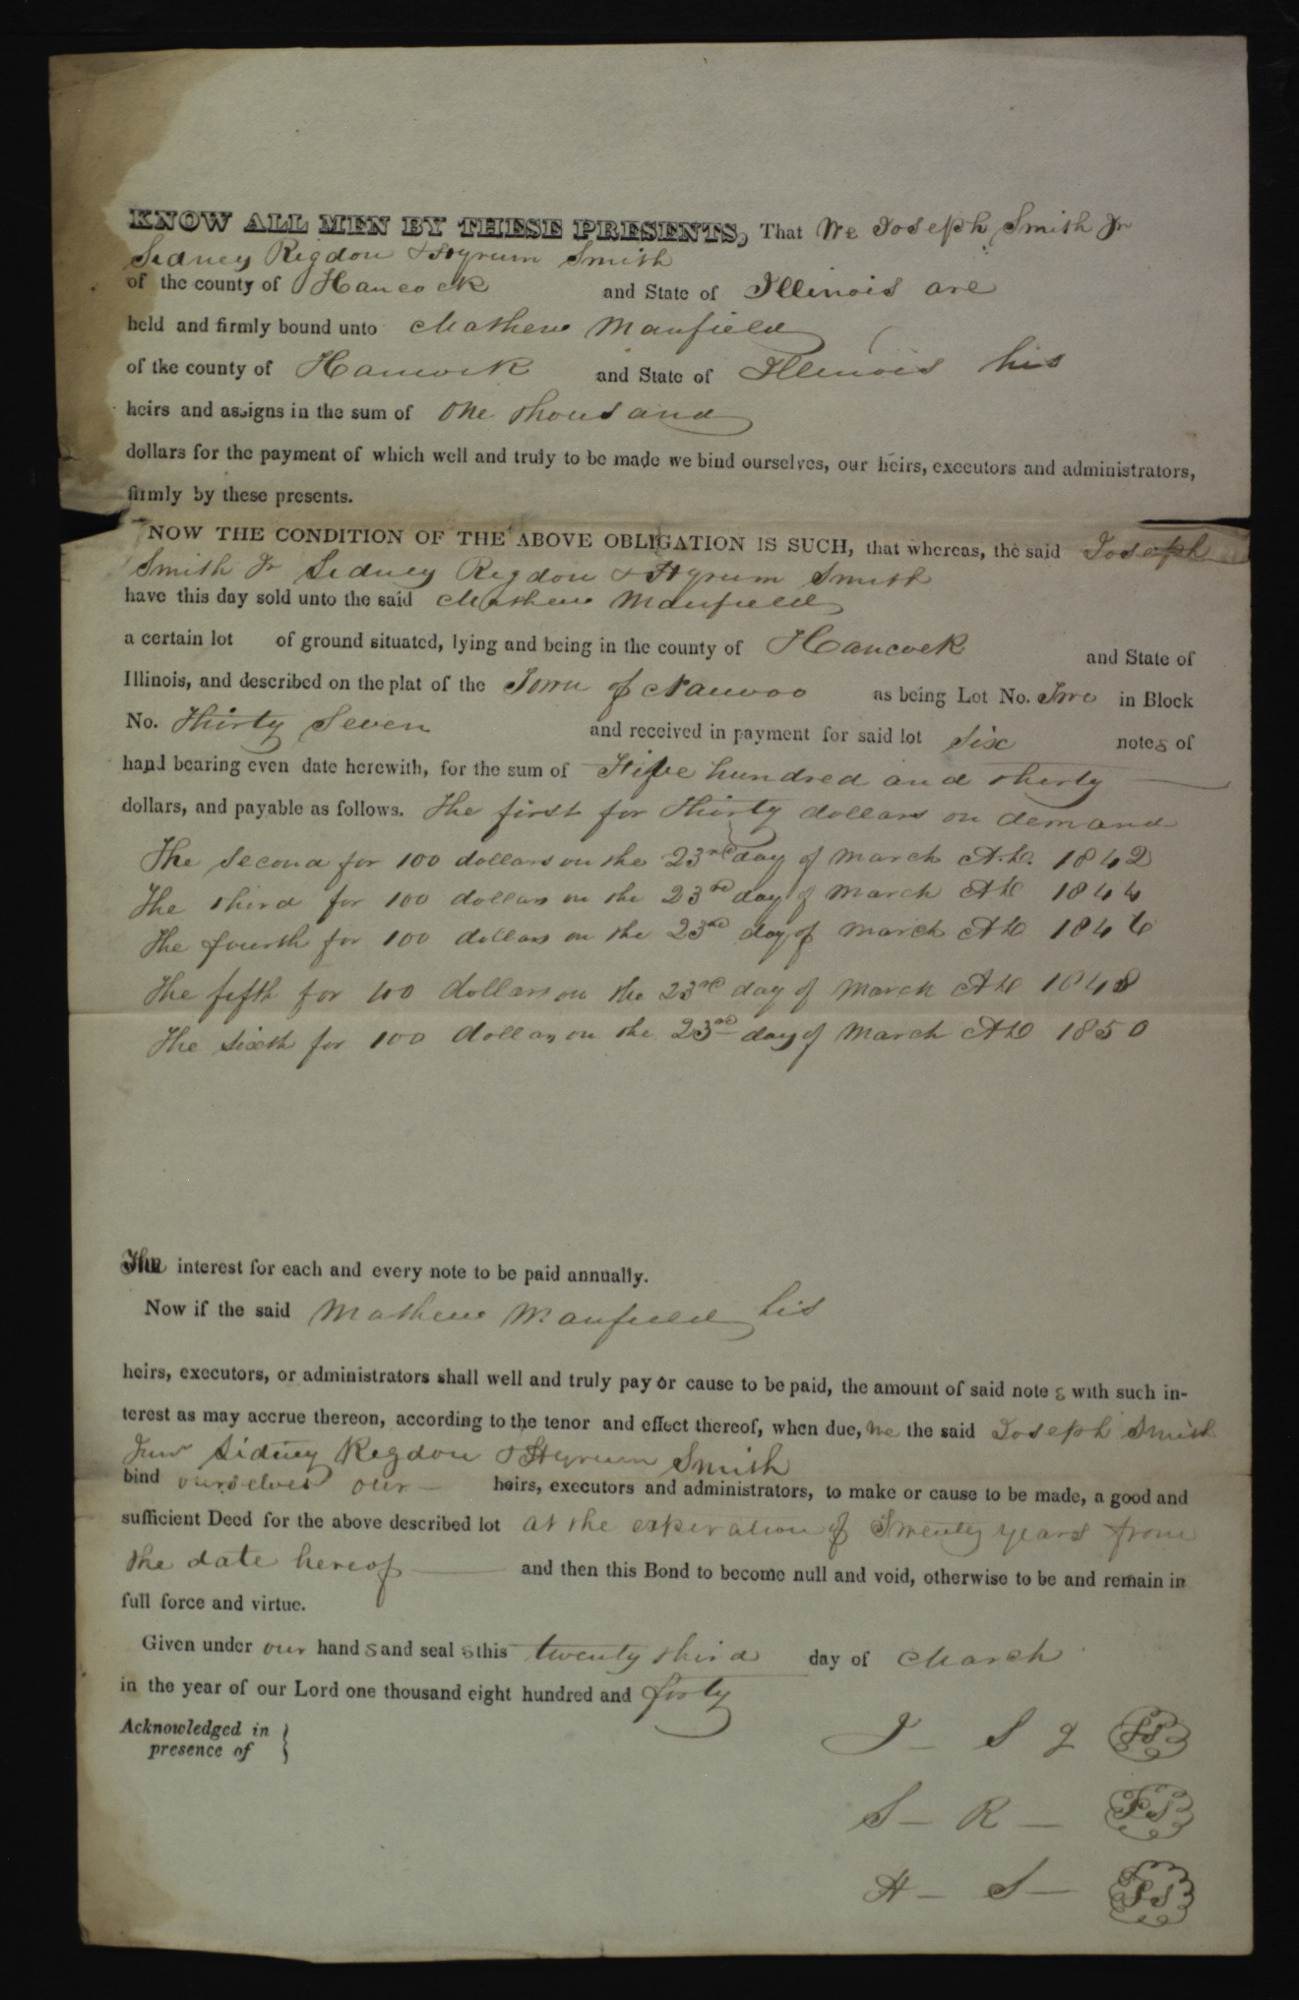 KNOW ALL MEN BY THESE PRESENTS, That We Joseph Smith Jr
Sidney Rigdon & Hyrum Smith
of the county of Hancock and State of Illinois are
held and firmly bound unto Mathew Manfield
of the county of Hancock and State of Illinois his
heirs and assigns in the sum of One thousand
dollars for the payment of which well and truly to be made we bind ourselves, our heirs, executors and administrators,
firmly by these presents.
NOW THE CONDITION OF THE ABOVE OBLIGATION IS SUCH, that whereas, the said Joseph
Smith Jr Sidney Rigdon & Hyrum Smith
have this day sold unto the said Mathew Manfield
a certain lot of ground situated, lying and being in the county of Hancock and State of
Illinois, and described on the plat of the Town of Nauvoo as being Lot No. Two in Block
No. Thirty Seven and received in payment for said lot six notes of
hand bearing even date herewith, for the sum of Five hundred and thirty
dollars, and payable as follows. The first for Thirty dollars on demand
The second for 100 dollars on the 23rd day of March A.D. 1842
The third for 100 dollars on the 23rd day of March AD 1844
The fourth for 100 dollars on the 23rd day of March AD 1846
The fifth for 100 dollars on the 23rd day of March AD 1848
The sixth for 100 dollars on the 23rd day of March AD 1850
The interest for each and every note to be paid annually.
Now if the said Mathew Manfield his
heirs, executors, or administrators shall well and truly pay or cause to be paid, the amount of said note s with such in-
terest as may accrue thereon, according to the tenor and effect thereof, when due, We the said Joseph Smith
Junr Sidney Rigdon & Hyrum Smith
bind ourselves our heirs, executors and administrators, to make or cause to be made, a good and
sufficient Deed for the above described lot at the expiration of Twenty years from
the date hereof and then this Bond to become null and void, otherwise to be and remain in
full force and virtue.
Given under our hand s and seal s this twenty third day of March
in the year of our Lord one thousand eight hundred and forty
Acknowledged in
presence of
J - S J
S - R -
H - S -